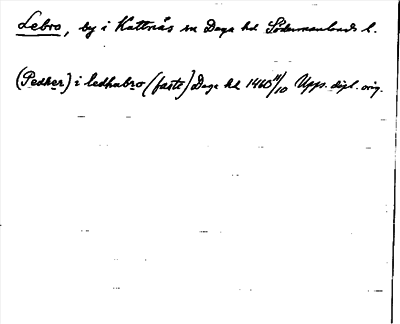 Lebro, by i Kattnäs sn Daga hd Södermanlands l.
(Pedher) i ledhabro (faste) Daga hd 1460 11/10 Upps. dipl. orig.